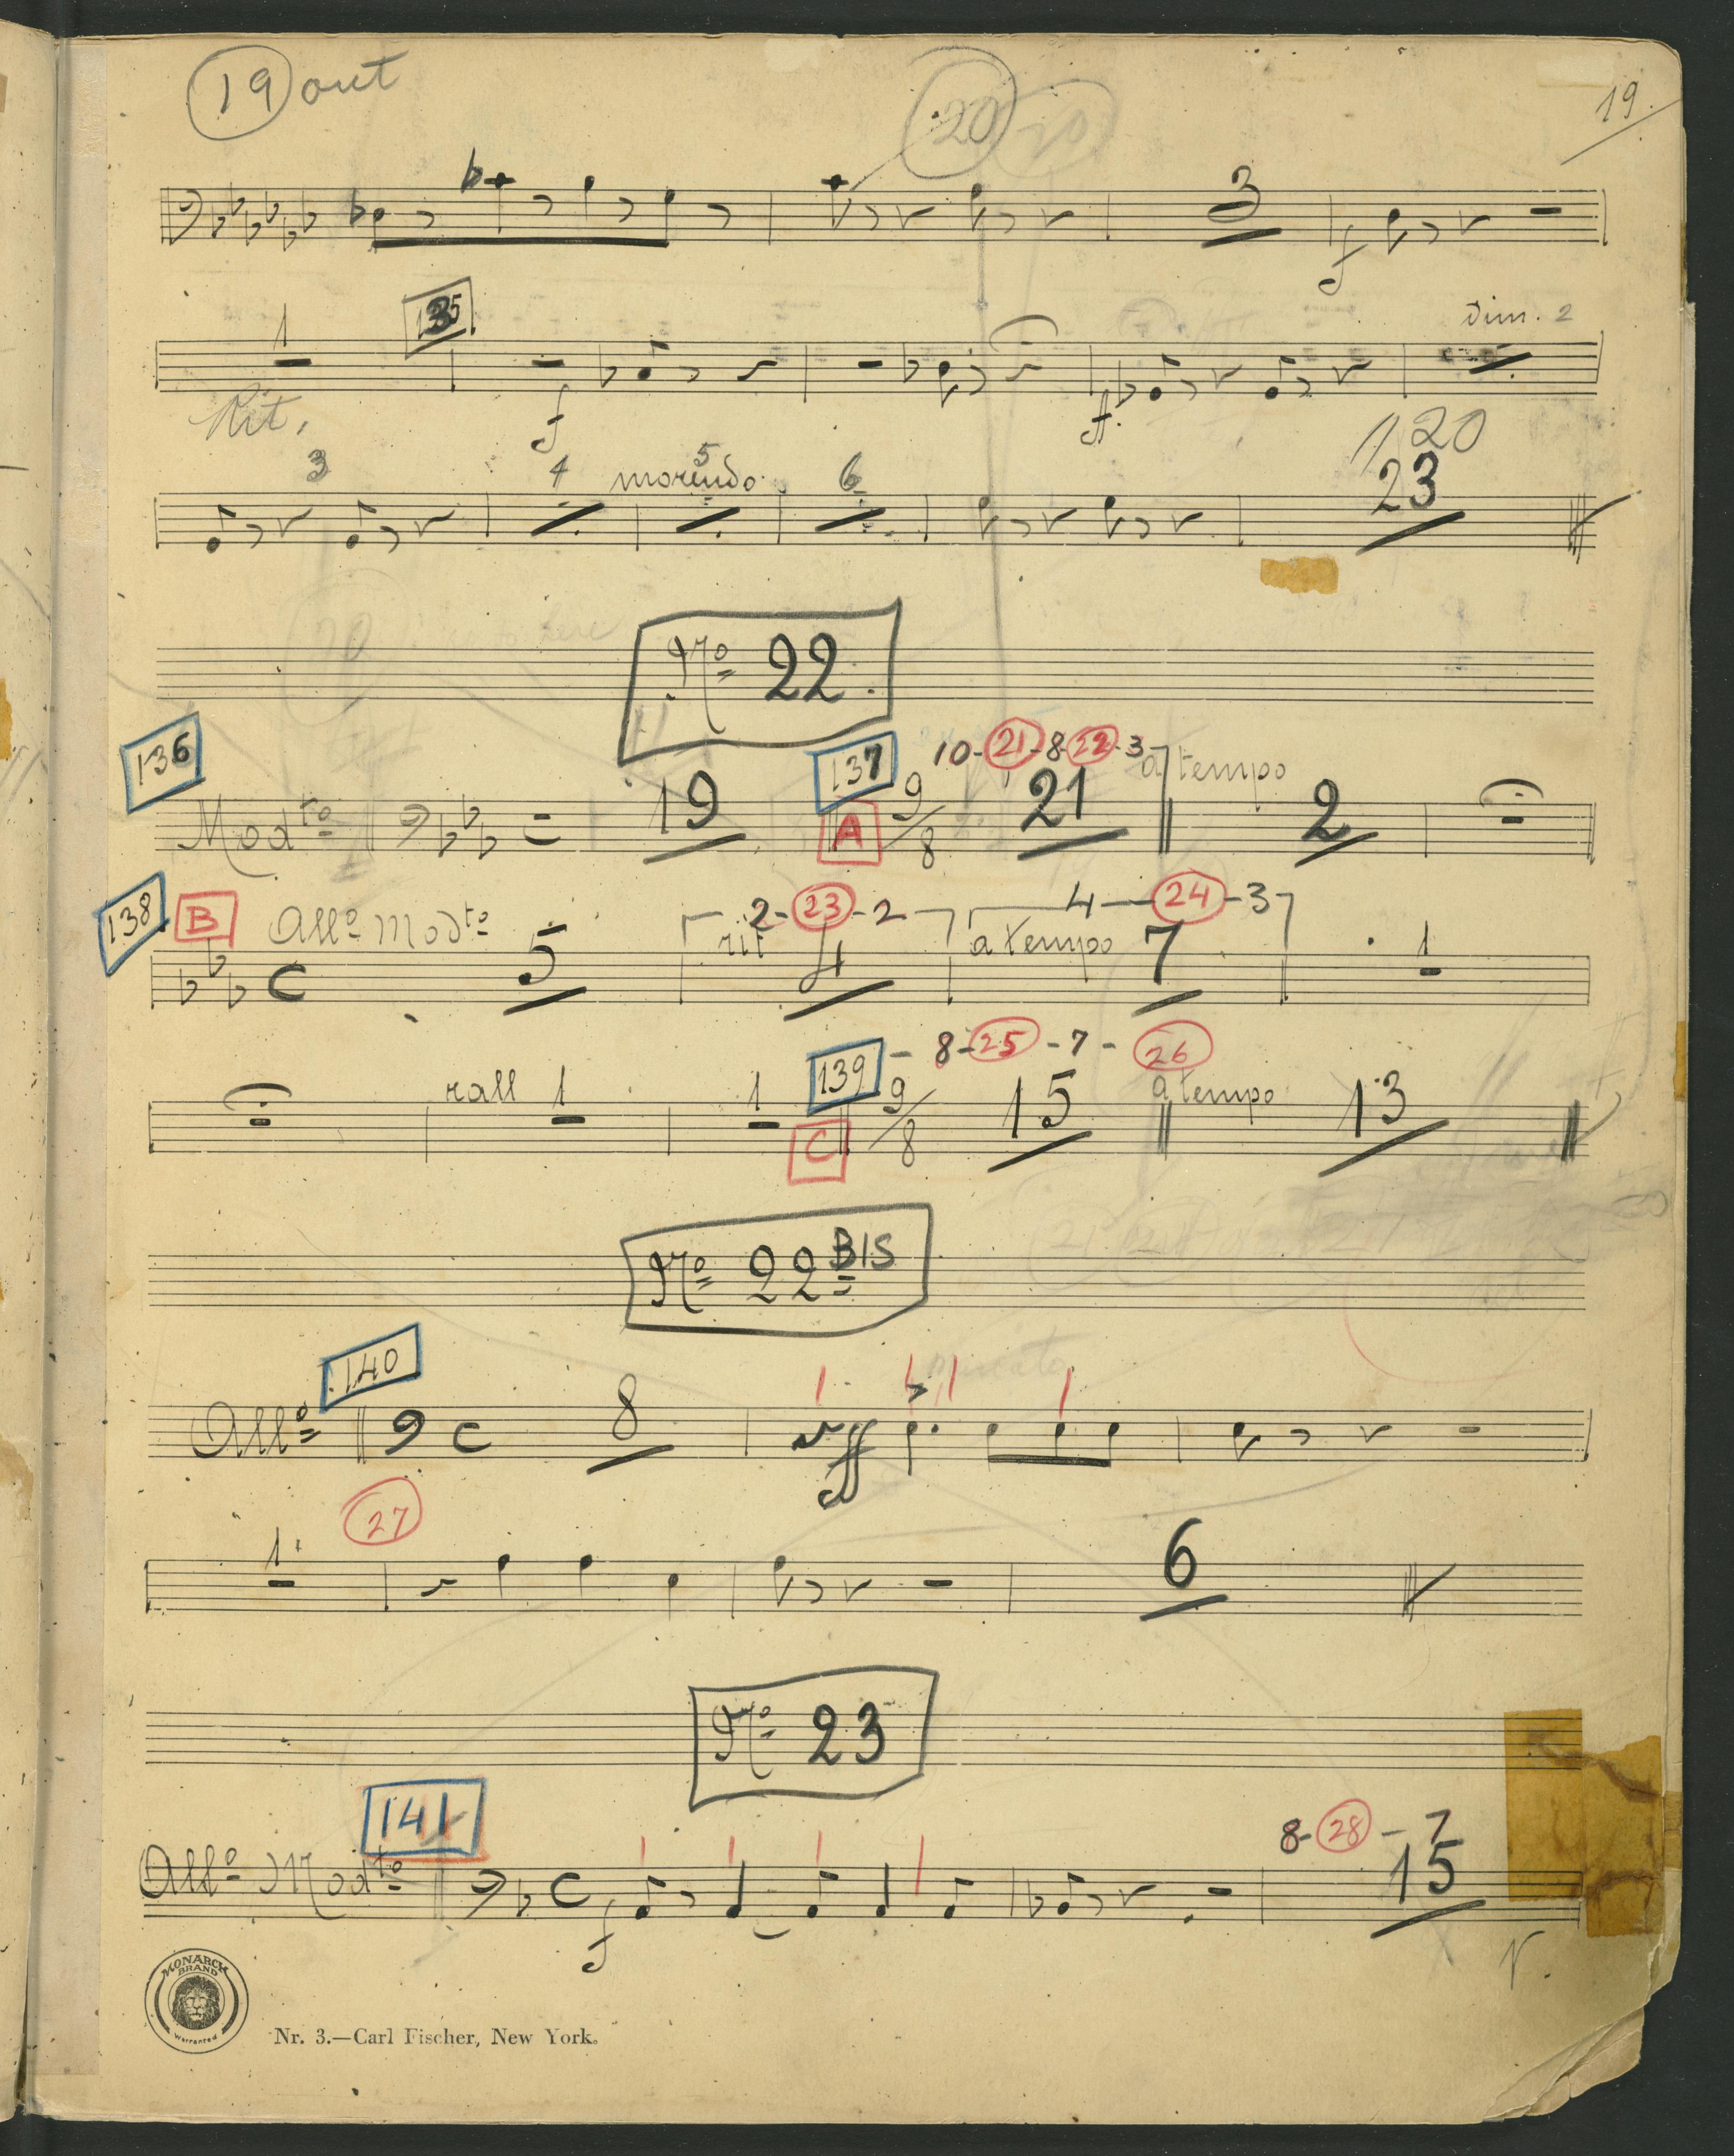 19 out 20 20 19.
3 f
1 135 Dim. 2
Rit, f ff.
1120
3 4 morendo 5 6 23
No 22.
136 137 10-21-8-22-3 a tempo
Modto 19 A 9/8 21 2
138 B Allo Modto 2-23-2 4-24-3
C 5 rit 4 a tempo 7 1
139 - 8-25-7-26
rall 1 1 C 9/8 15 a tempo 13
No 22 BIS
140
Allo C 8 ff
27
1 6
No 23
141 8-28-7
Allo Modto C f 15
V.
MONARCH BRAND
Warranted
Nr. 3.—Carl Fischer, New York.